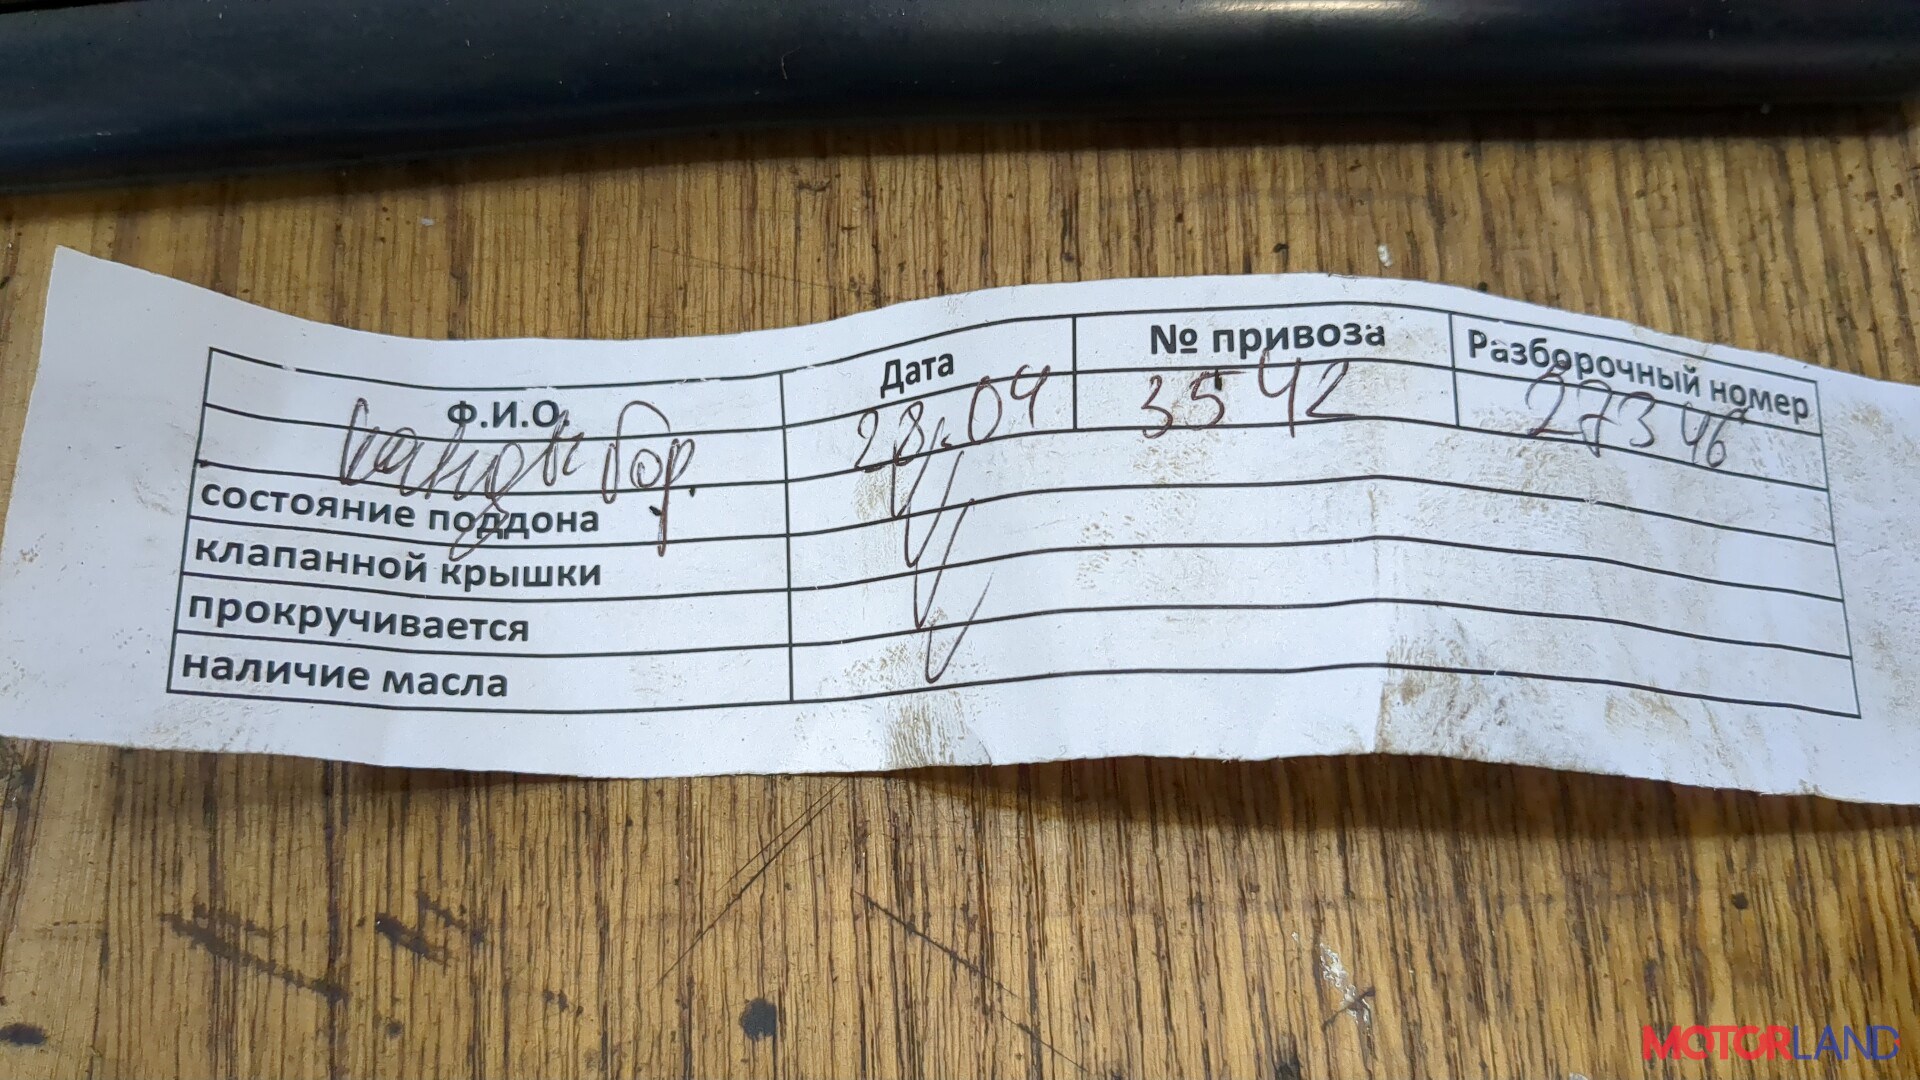 Ф.И.О. Дата № привоза Разборочный номер
28.04 3542 27346
состояние поддона
клапанной крышки
прокручивается
наличие масла
MOTORLAND